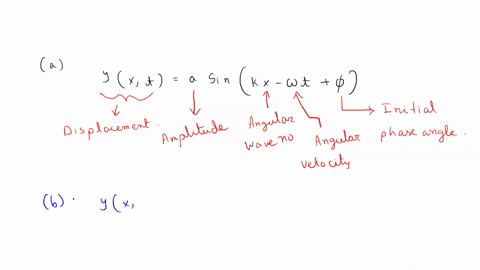 (a) y(x, t) = a Sin (kx - ωt + φ)
Displacement. Amplitude Angular wave no Angular velocity Initial phase angle.
(b). y(x,